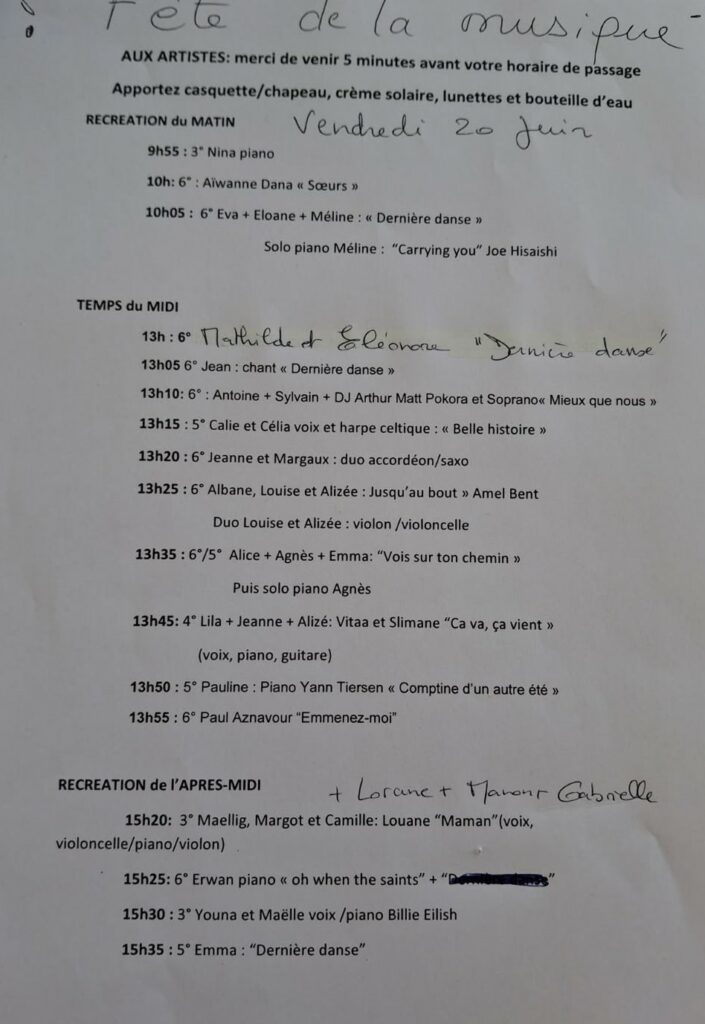 Fête de la musique
AUX ARTISTES: merci de venir 5 minutes avant votre horaire de passage
Apportez casquette/chapeau, crème solaire, lunettes et bouteille d'eau
RECREATION du MATIN Vendredi 20 Juin
9h55 : 3° Nina piano
10h: 6° : Aïwanne Dana « Sœurs »
10h05 : 6° Eva + Eloane + Méline : « Dernière danse »
Solo piano Méline : "Carrying you" Joe Hisaishi
TEMPS du MIDI
13h : 6° Mathilde et Eléonore "Dernière danse"
13h05 6° Jean : chant « Dernière danse »
13h10: 6° : Antoine + Sylvain + DJ Arthur Matt Pokora et Soprano« Mieux que nous »
13h15 : 5° Calie et Célia voix et harpe celtique : « Belle histoire »
13h20 : 6° Jeanne et Margaux : duo accordéon/saxo
13h25 : 6° Albane, Louise et Alizée : Jusqu'au bout » Amel Bent
Duo Louise et Alizée : violon /violoncelle
13h35 : 6°/5° Alice + Agnès + Emma: "Vois sur ton chemin »
Puis solo piano Agnès
13h45: 4° Lila + Jeanne + Alizé: Vitaa et Slimane "Ca va, ça vient »
(voix, piano, guitare)
13h50 : 5° Pauline : Piano Yann Tiersen « Comptine d'un autre été »
13h55 : 6° Paul Aznavour "Emmenez-moi"
RECREATION de l'APRES-MIDI + Lorane + Manon + Gabrielle
15h20: 3° Maellig, Margot et Camille: Louane "Maman"(voix,
violoncelle/piano/violon)
15h25: 6° Erwan piano « oh when the saints" + " "
15h30 : 3° Youna et Maëlle voix /piano Billie Eilish
15h35 : 5° Emma : "Dernière danse"